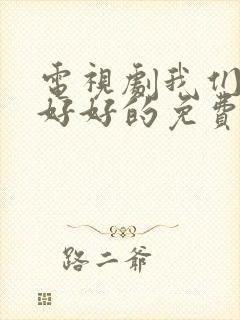 電視劇我们
好好的免費
路二爺